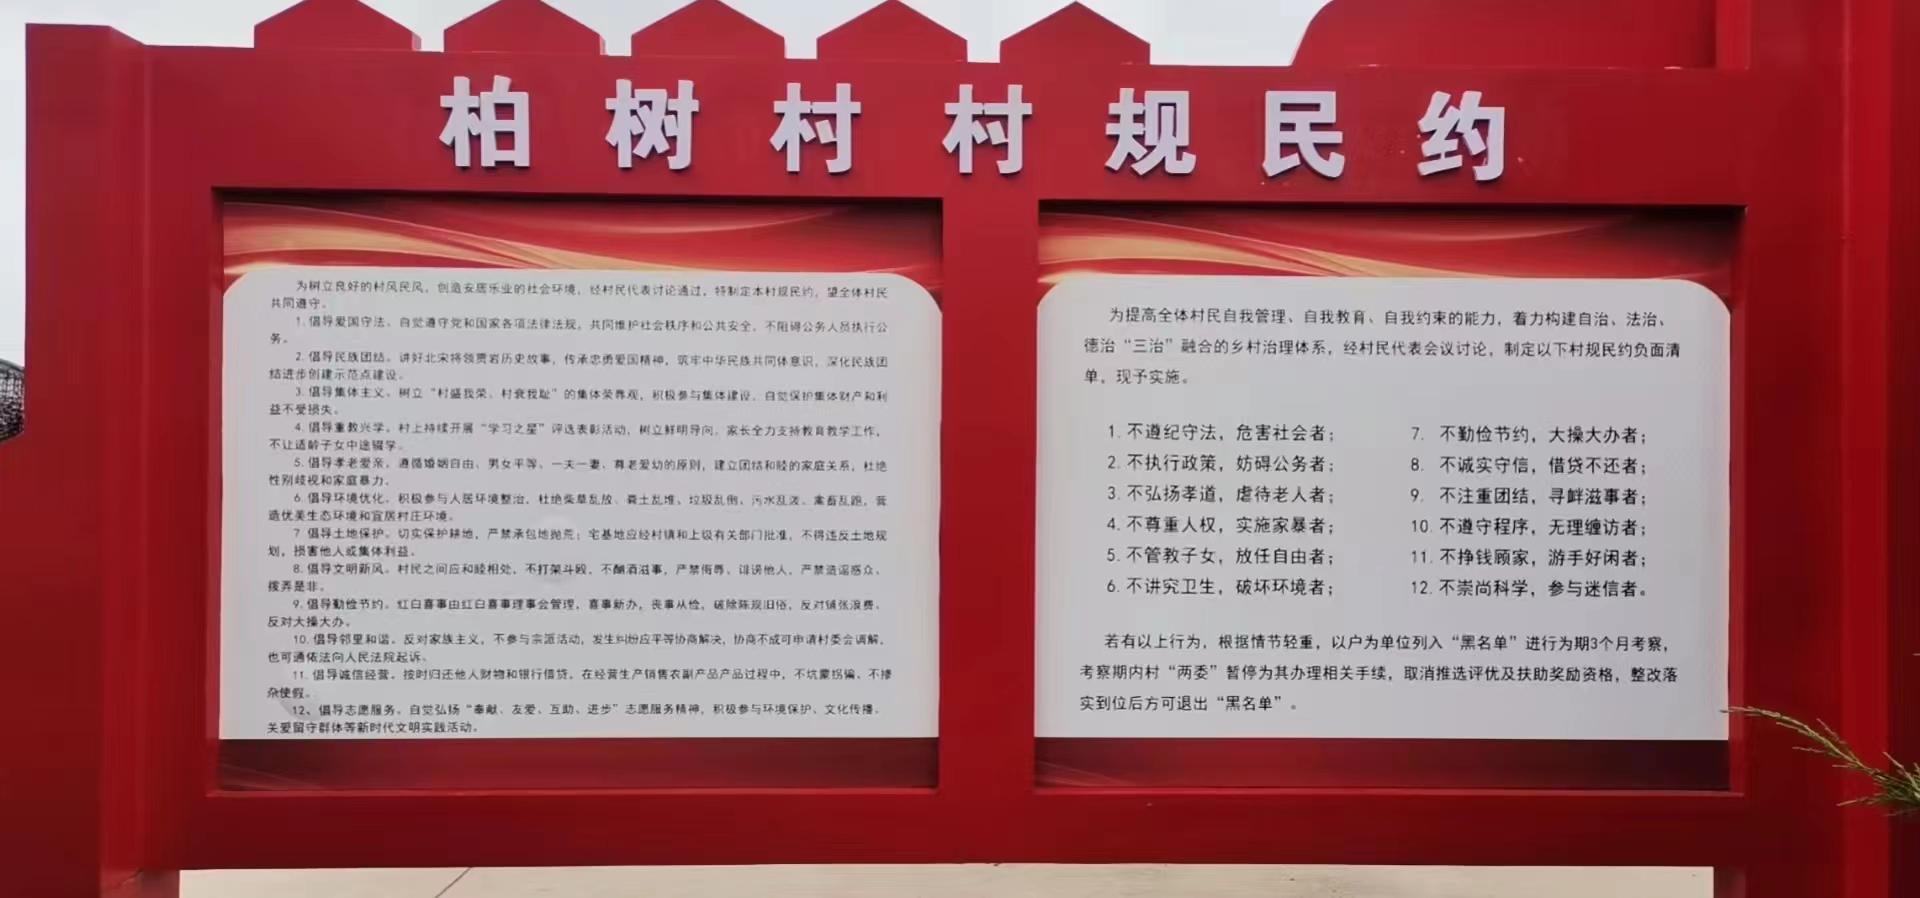 柏树村村规民约
为树立良好的村风民风，创造安居乐业的社会环境，经村民代表讨论通过，特制定本村规民约，望全体村民
共同遵守。
1. 倡导爱国守法。自觉遵守党和国家各项法律法规，共同维护社会秩序和公共安全，不阻碍公务人员执行公
务。
2. 倡导民族团结。讲好北宋将领贾岩历史故事，传承忠勇爱国精神，筑牢中华民族共同体意识，深化民族团
结进步创建示范点建设。
3. 倡导集体主义。树立“村盛我荣、村衰我耻”的集体荣辱观，积极参与集体建设，自觉保护集体财产和利
益不受损失。
4. 倡导重教兴学。村上持续开展“学习之星”评选表彰活动，树立鲜明导向，家长全力支持教育教学工作，
不让适龄子女中途辍学。
5. 倡导孝老爱亲。遵循婚姻自由、男女平等、一夫一妻、尊老爱幼的原则，建立团结和睦的家庭关系，杜绝
性别歧视和家庭暴力。
6. 倡导环境优化。积极参与人居环境整治，杜绝柴草乱放、粪土乱堆、垃圾乱倒、污水乱泼、禽畜乱跑，营
造优美生态环境和宜居村庄环境。
7 倡导土地保护。切实保护耕地，严禁承包地抛荒；宅基地应经村镇和上级有关部门批准，不得违反土地规
划，损害他人或集体利益。
8. 倡导文明新风。村民之间应和睦相处，不打架斗殴，不酗酒滋事，严禁侮辱、诽谤他人，严禁造谣惑众、
拨弄是非。
9. 倡导勤俭节约。红白喜事由红白喜事理事会管理，喜事新办，丧事从俭，破除陈规旧俗，反对铺张浪费、
反对大操大办。
10. 倡导邻里和谐。反对家族主义，不参与宗派活动，发生纠纷应平等协商解决，协商不成可申请村委会调解，
也可通依法向人民法院起诉。
11. 倡导诚信经营。按时归还他人财物和银行借贷，在经营生产销售农副产品产品过程中，不坑蒙拐骗、不掺
杂使假。
12、倡导志愿服务。自觉弘扬“奉献、友爱、互助、进步”志愿服务精神，积极参与环境保护、文化传播、
关爱留守群体等新时代文明实践活动。
为提高全体村民自我管理、自我教育、自我约束的能力，着力构建自治、法治、
德治“三治”融合的乡村治理体系，经村民代表会议讨论，制定以下村规民约负面清
单，现予实施。
1. 不遵纪守法，危害社会者；
2. 不执行政策，妨碍公务者；
3. 不弘扬孝道，虐待老人者；
4. 不尊重人权，实施家暴者；
5. 不管教子女，放任自由者；
6. 不讲究卫生，破坏环境者；
7. 不勤俭节约，大操大办者；
8. 不诚实守信，借贷不还者；
9. 不注重团结，寻衅滋事者；
10. 不遵守程序，无理缠访者；
11. 不挣钱顾家，游手好闲者；
12. 不崇尚科学，参与迷信者。
若有以上行为，根据情节轻重，以户为单位列入“黑名单”进行为期3个月考察，
考察期内村“两委”暂停为其办理相关手续，取消推选评优及扶助奖励资格，整改落
实到位后方可退出“黑名单”。